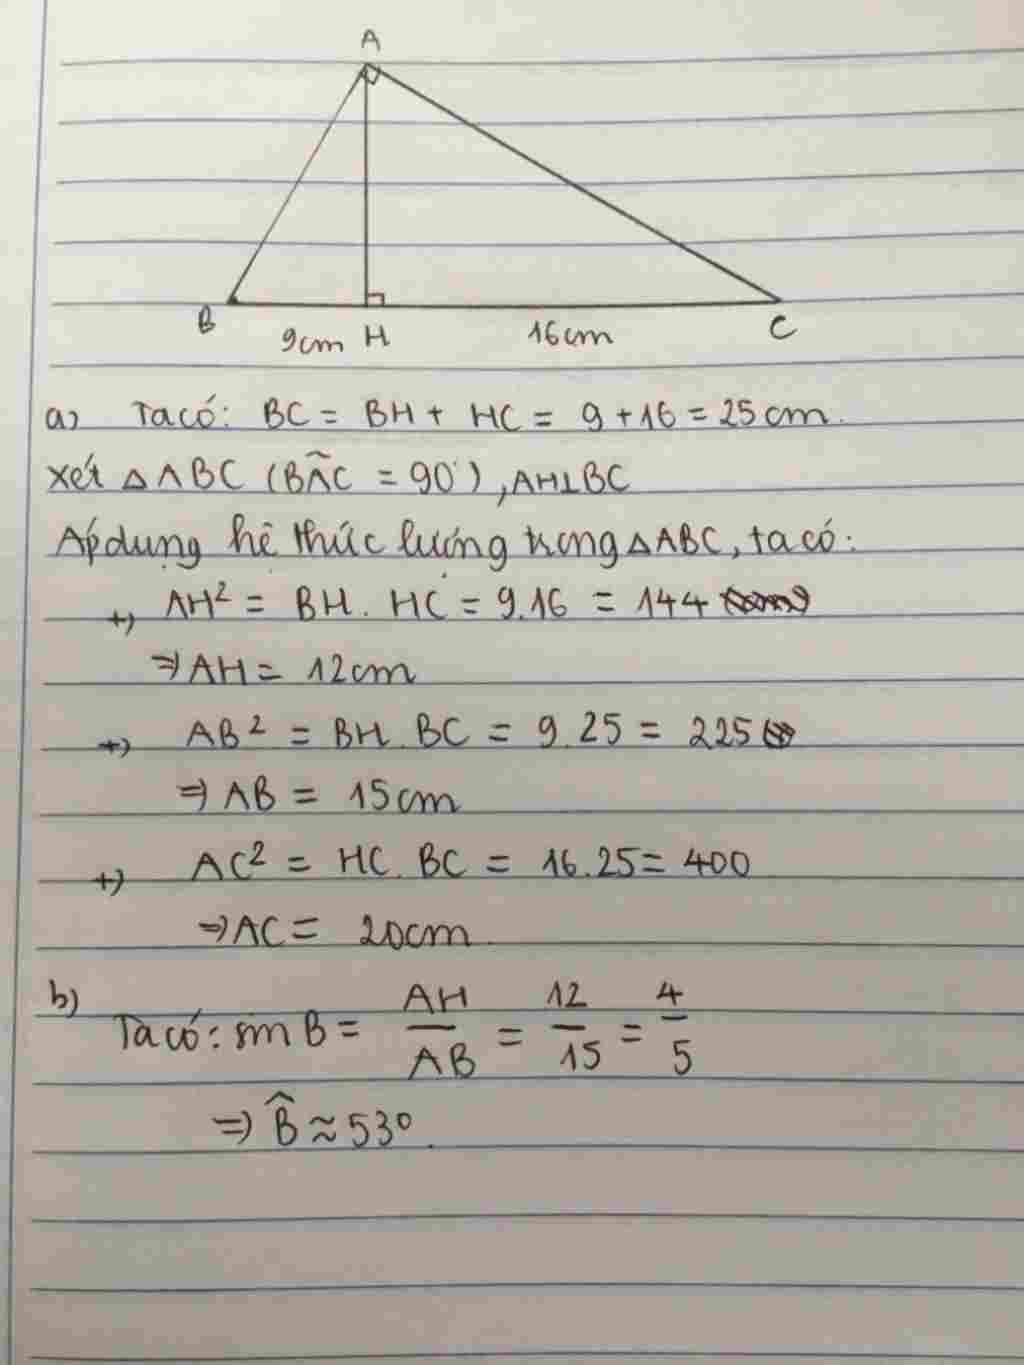 A
B
9cm H
16cm
C
a) Ta có: BC = BH + HC = 9 + 16 = 25 cm.
Xét △ABC (BÂC = 90°), AH⊥BC
Áp dụng hệ thức lượng trong △ABC, ta có:
+) AH² = BH. HC = 9.16 = 144
⇒ AH = 12cm
+) AB² = BH. BC = 9.25 = 225
⇒ AB = 15cm
+) AC² = HC. BC = 16.25 = 400
⇒ AC = 20cm.
b) Ta có: sin B = AH/AB = 12/15 = 4/5
⇒ B̂ ≈ 53°.